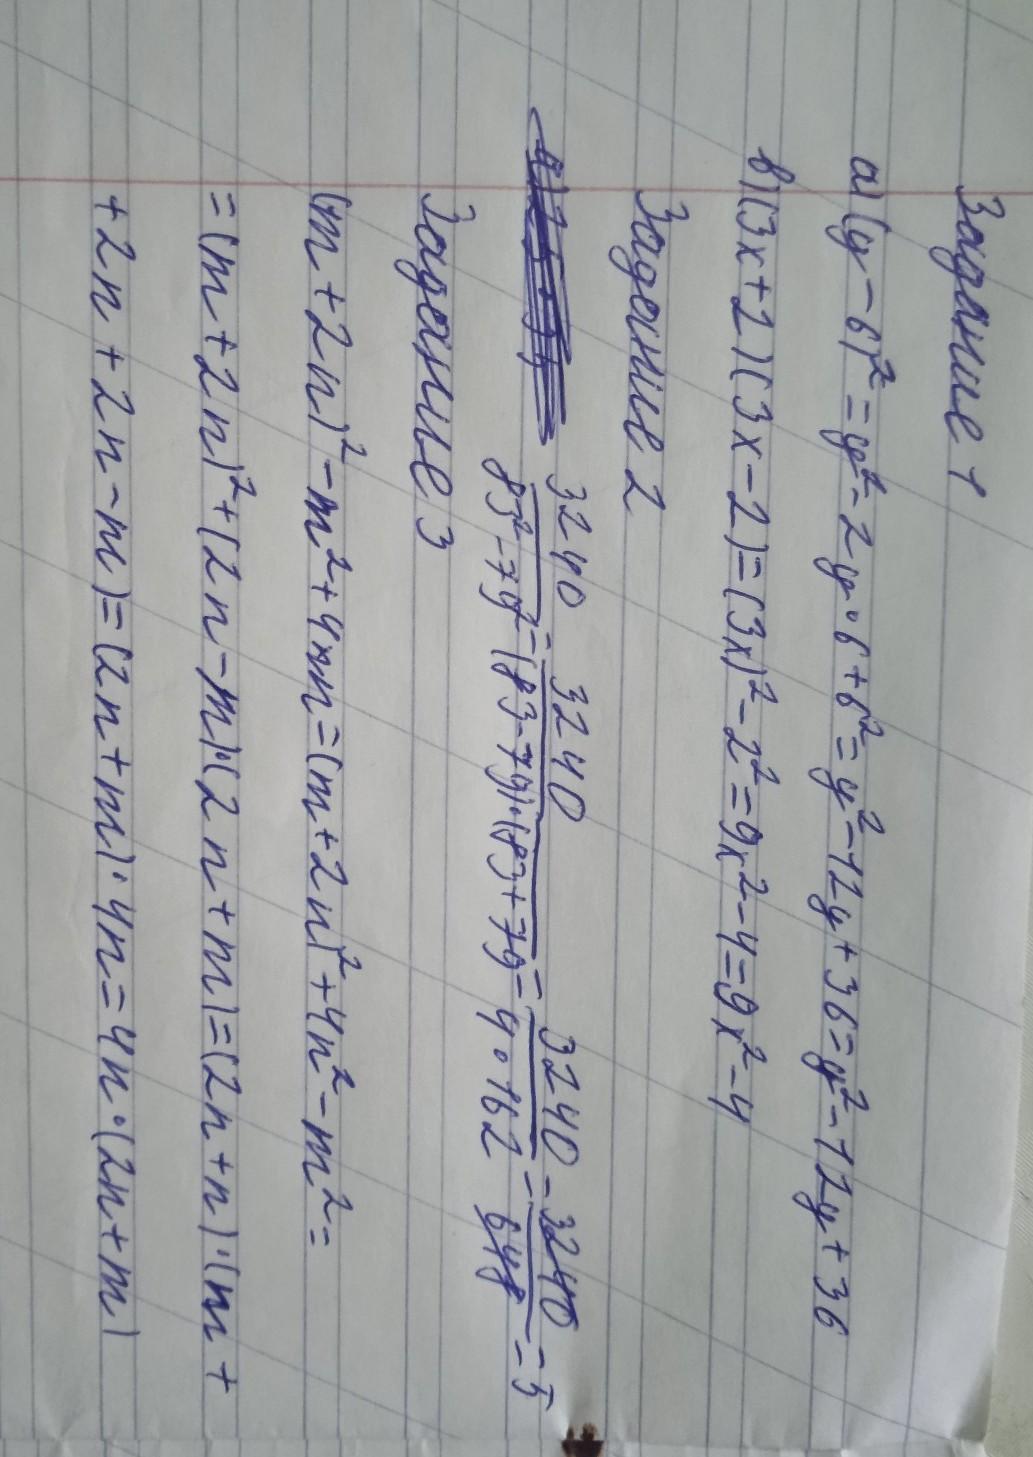 Задание 1
а) (y - 6)² = y² - 2y · 6 + 6² = y² - 12y + 36 = y² - 12y + 36
в) (3x + 2)(3x - 2) = (3x)² - 2² = 9x² - 4 = 9x² - 4
Задание 2
3240 / 83² - 79² = 3240 / (83 - 79) · (83 + 79 = 3240 / 4 · 162 = 3240 / 648 = 5
Задание 3
(m + 2n)² - m² + 4nm = (m + 2n)² + 4n² - m² =
= (m + 2n)² + (2n - m) · (2n + m) = (2n + n) · (m +
+ 2n + 2n - m) = (2n + m) · 4n = 4n · (2n + m)